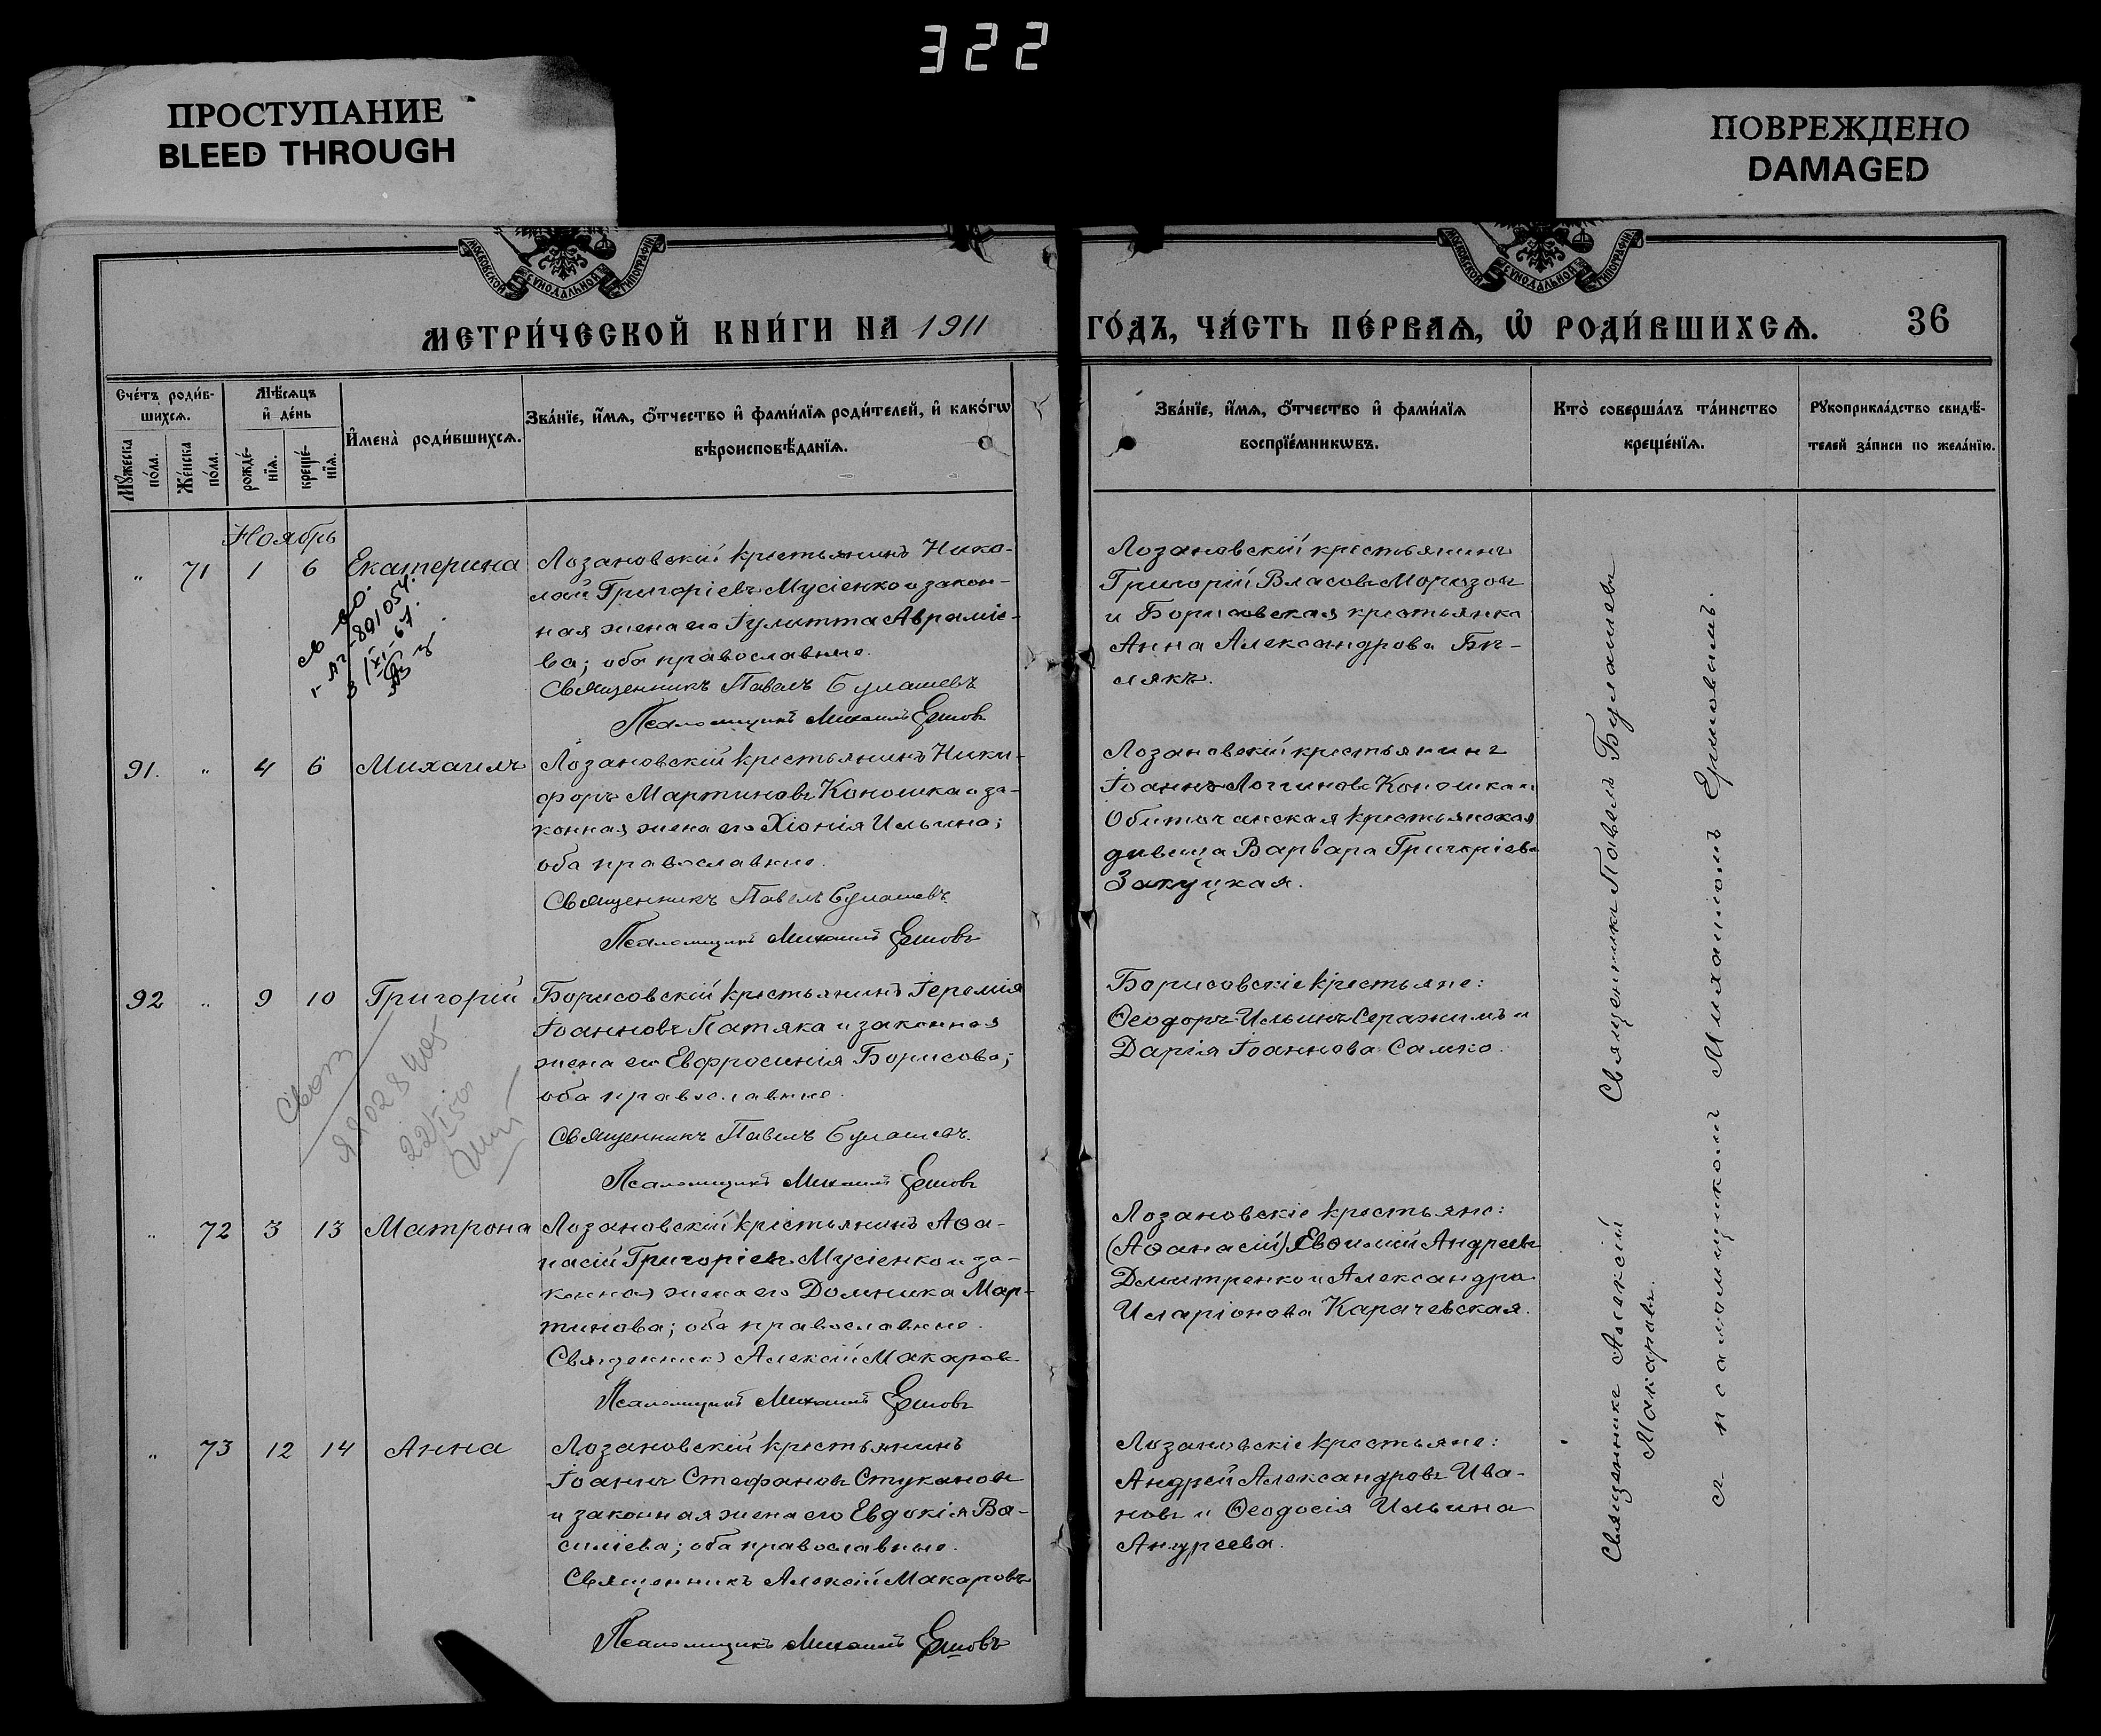 322
ПРОСТУПАНИЕ
BLEED THROUGH
ПОВРЕЖДЕНО
DAMAGED
МОСКОВСКОЙ СѴНОДАЛЬНОЙ ТИПОГРАФІИ.
МОСКОВСКОЙ СѴНОДАЛЬНОЙ ТИПОГРАФІИ.
МЕТРИ́ЧЕСКОЙ КНИ́ГИ НА 1911
ГО́ДЪ, ЧА́СТЬ ПЕ́РВАѦ, Ѡ҆ РОДИ́ВШИХСѦ.
36
Сче́тъ роди́в-
шихсѧ.
Мꙋ́жеска
по́ла.
Же́нска
по́ла.
Мѣ́сѧцъ
и҆ де́нь
рожде́-
нїѧ.
креще́-
нїѧ.
И҆мена̀ роди́вшихсѧ.
Зва́нїе, и҆́мѧ, ѻ҆́тчество и҆ фами́лїѧ роди́телей, и҆ како́гѡ
вѣроисповѣ́данїѧ.
Зва́нїе, и҆́мѧ, ѻ҆́тчество и҆ фами́лїѧ
воспрїе́мникѡвъ.
Кто̀ соверша́лъ та́инство
креще́нїѧ.
Рꙋкоприкла́дство свидѣ́-
телей за́писи по жела́нїю.
Ноябрь
„ 71 1 6 Екатерина
Лозановскій крестьянинъ Нико-
лай Григоріевъ Мусіенко и закон-
ная жена его Іулитта Авраміе-
ва; оба православные.
Священникъ Павелъ Булашевъ
Псаломщикъ Михаилъ Ершовъ
Лозановскій крестьянинъ
Григорій Власовъ Морозовъ
и Борисовская крестьянка
Анна Александрова Бы-
лякъ.
91. „ 4 6 Михаилъ
Лозановскій крестьянинъ Ники-
форъ Мартиновъ Коношка и за-
конная жена его Хіонія Ильина;
оба православные.
Священникъ Павелъ Булашевъ
Псаломщикъ Михаилъ Ершовъ
Лозановскій крестьянинъ
Іоаннъ Логиновъ Коношка и
Обиточанская крестьянская
дѣвица Варвара Григоріева
Закуцкая.
92 „ 9 10 Григорій
Борисовскій крестьянинъ Іеремія
Іоанновъ Патяка и законная
жена его Евфросинія Борисова;
оба православные.
Священникъ Павелъ Булашевъ.
Псаломщикъ Михаилъ Ершовъ
Борисовскіе крестьяне:
Ѳеодоръ Ильинъ Серажимъ и
Дарія Іоаннова Самко.
„ 72 3 13 Матрона
Лозановскій крестьянинъ Аѳа-
насій Григоріевъ Мусіенко и за-
конная жена его Домника Мар-
тинова; оба православные.
Священникъ Алексій Макаровъ
Псаломщикъ Михаилъ Ершовъ
Лозановскіе крестьяне:
(Аѳанасій) Евѳимій Андреевъ
Дмитренко и Александра
Иларіонова Карачевская.
„ 73 12 14 Анна
Лозановскій крестьянинъ
Іоаннъ Стефановъ Стукановъ
и законная жена его Евдокія Ва-
силіева; оба православные.
Священникъ Алексій Макаровъ
Псаломщикъ Михаилъ Ершовъ
Лозановскіе крестьяне:
Андрей Александровъ Ива-
новъ и Ѳеодосія Ильина
Андреева.
Священникъ Павелъ Булашевъ
Священникъ Алексій
Макаровъ.
съ псаломщикомъ Михаиломъ Ершовымъ.